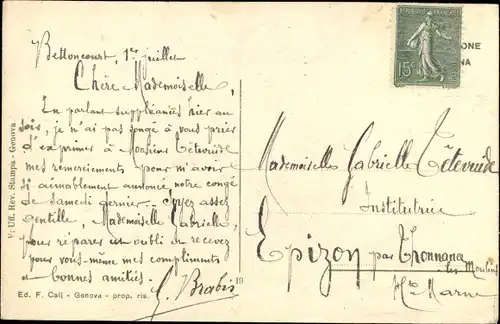 Bettoncourt, 1er juillet
Chère Mademoiselle,
En parlant suppléances hier au
soir, je n'ai pas songé à vous prier
d'exprimer à Monsieur Têtevuide
mes remerciements pour m'avoir
si aimablement annoncé notre congé
de samedi dernier. Soyez assez
gentille, Mademoiselle Gabrielle,
pour réparer cet oubli et recevez
pour vous-même mes compliments
et bonnes amitiés.
G. Brabis
19
Ed. F. Cali - Genova - prop. ris.
V: Uff. Rev. Stampa - Genova
REPUBLIQUE FRANÇAISE
15c
IONE
NA
Mademoiselle Gabrielle Têtevuide
Institutrice
Epizon par Thonnance
les Moulins
Hte Marne